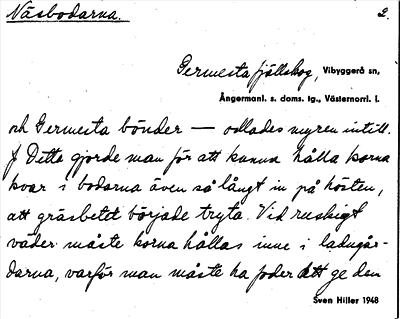 Näsbodarna. 2.
Germesta fjällskog, Vibyggerå sn,
Ångermanl. s. doms. tg., Västernorrl. l.
och Germesta bönder — odlades myren intill.
Detta gjorde man för att kunna hålla korna
kvar i bodarna även så långt in på hösten,
att gräsbetet började tryta. Vid ruskigt
väder måste korna hållas inne i ladugår-
darna, varför man måste ha foder att ge dem
Sven Hiller 1948